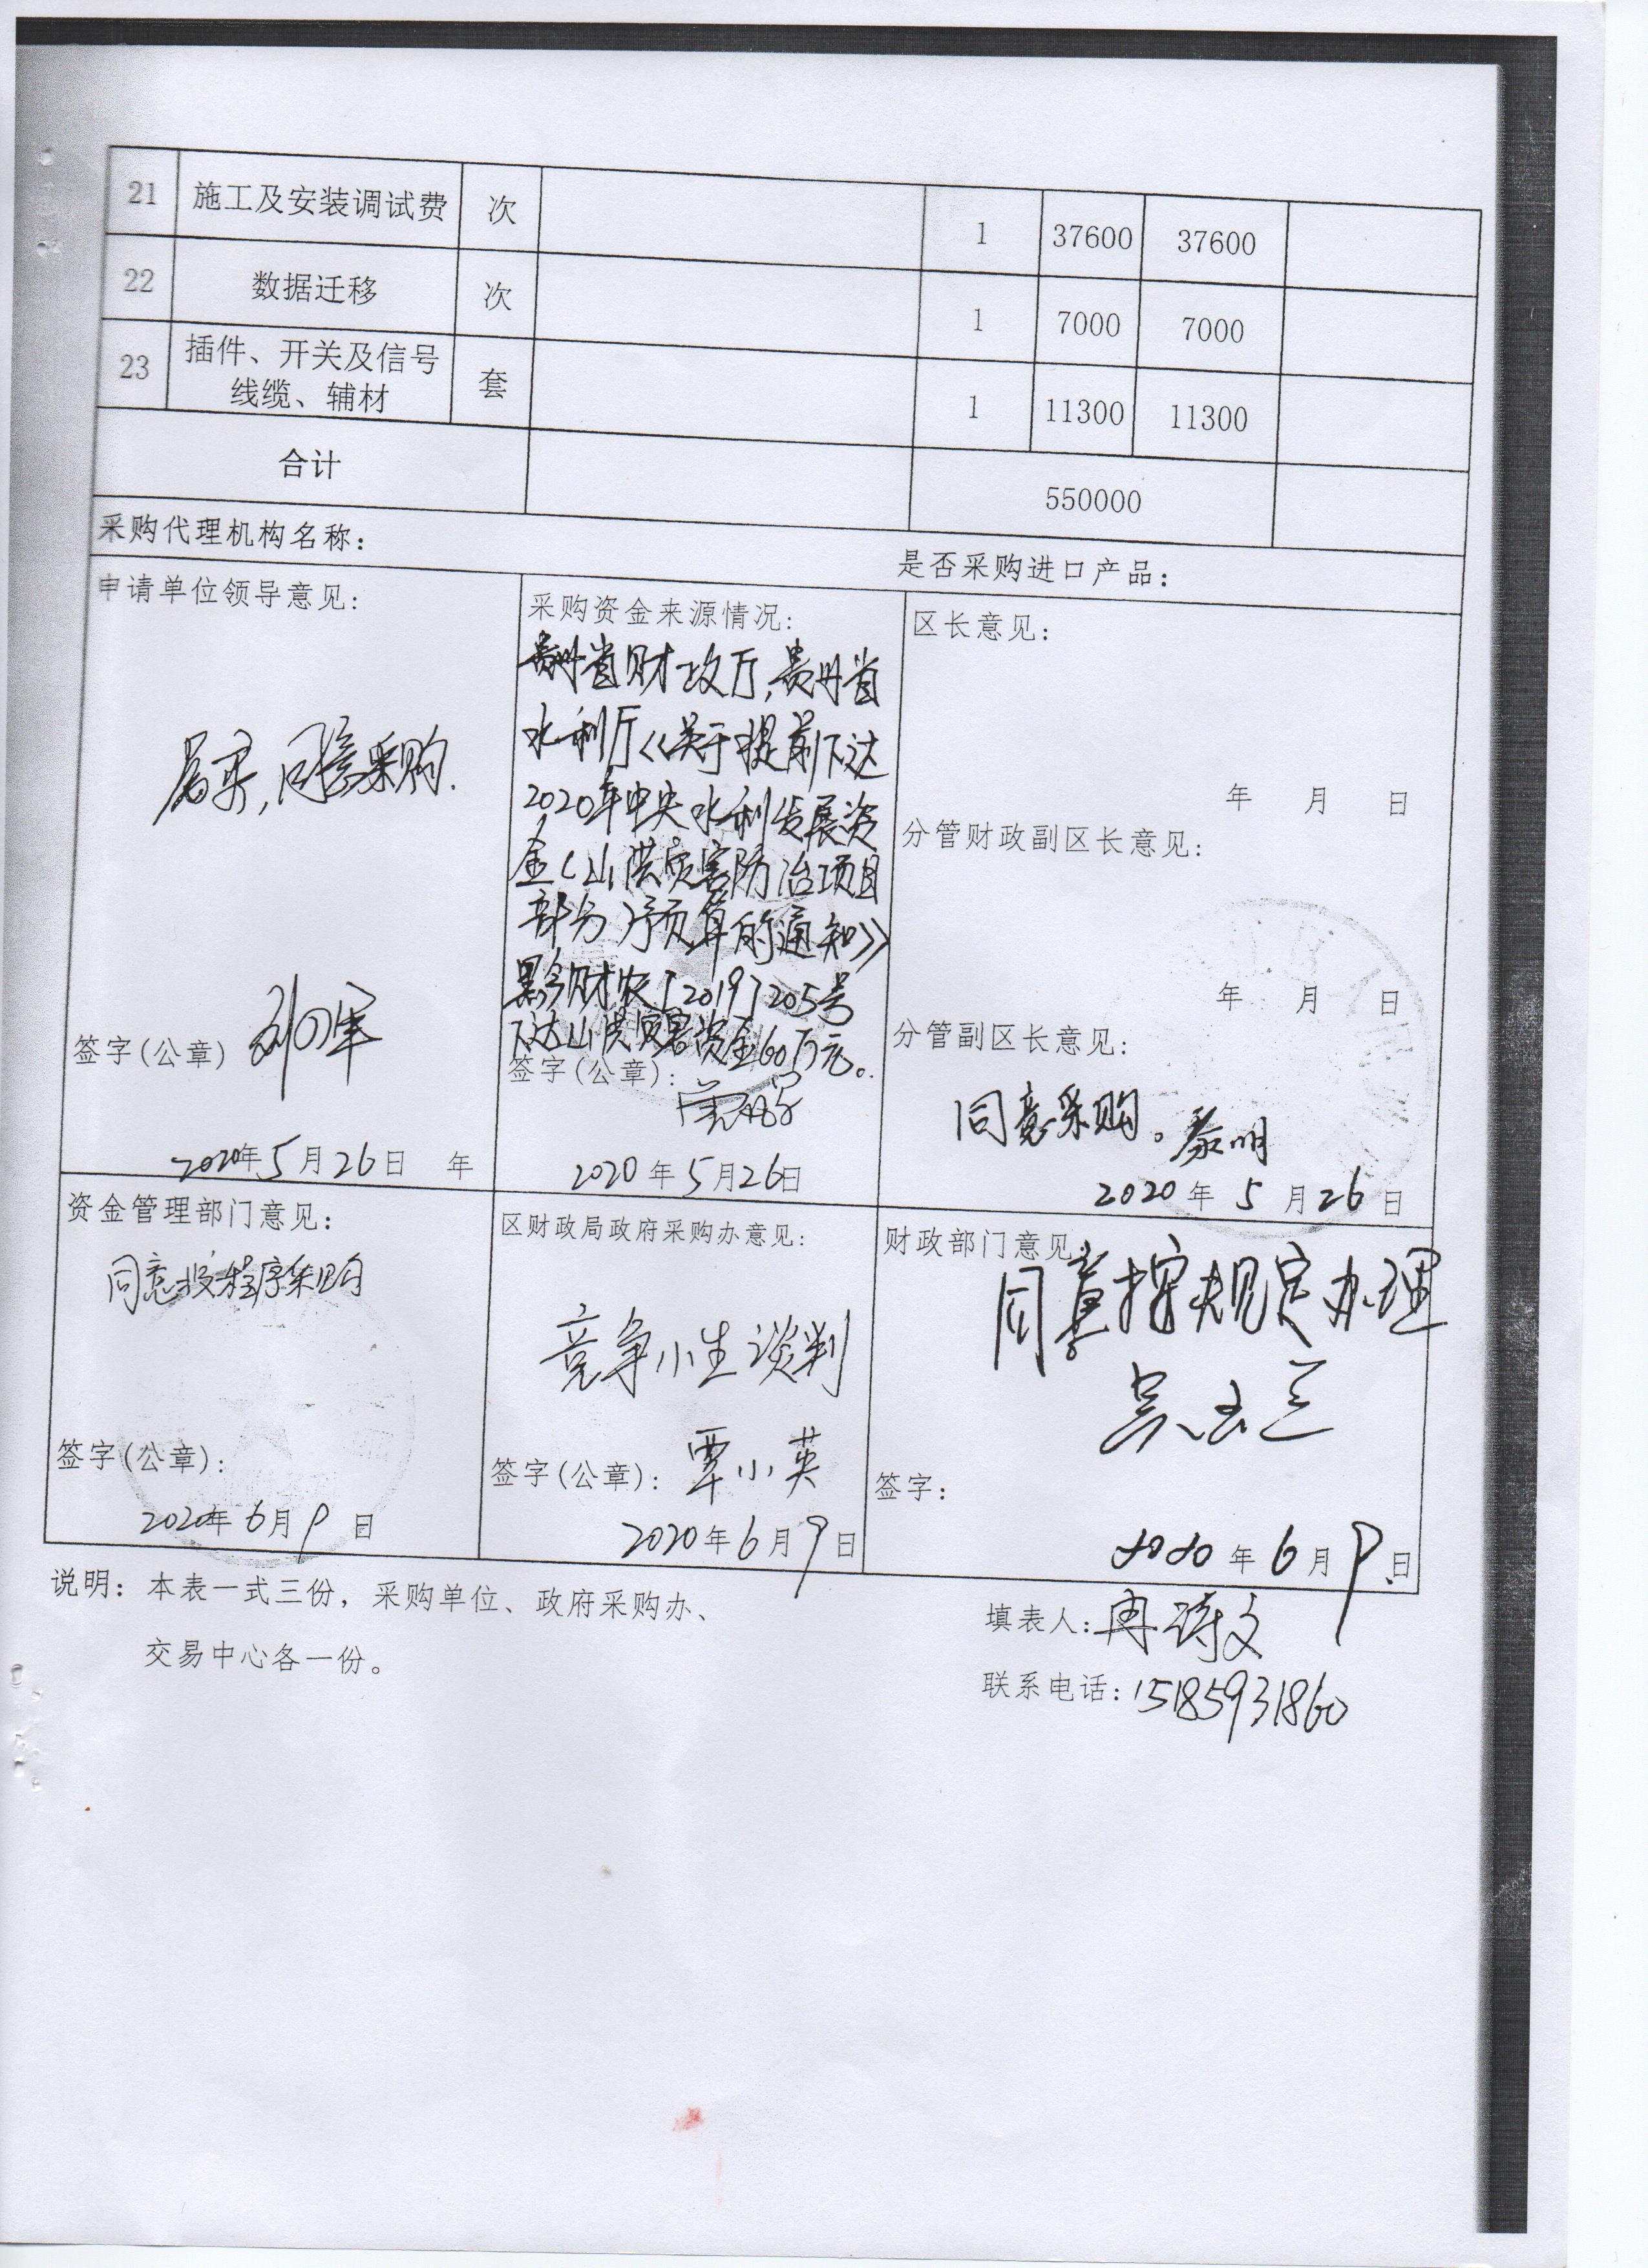 21 施工及安装调试费 次 1 37600 37600
22 数据迁移 次 1 7000 7000
23 插件、开关及信号线缆、辅材 套 1 11300 11300
合计 550000
采购代理机构名称: 是否采购进口产品:
申请单位领导意见:
属实,同意采购.
签字(公章)
2020年5月26日 年
采购资金来源情况:
贵州省财政厅,贵州省
水利厅《关于提前下达
2020年中央水利发展资
金(山洪灾害防治项目
部分)预算的通知》
黔财农[2019]205号
下达山洪灾害资金60万元。
签字(公章):
2020年5月26日
区长意见:
年 月 日
分管财政副区长意见:
年 月 日
分管副区长意见:
同意采购。黎明
2020年5月26日
资金管理部门意见:
同意按程序采购
签字(公章):
2020年6月9日
区财政局政府采购办意见:
竞争性谈判
签字(公章): 覃小英
2020年6月9日
财政部门意见:
同意按规定办理
签字:
2020年6月9日
说明: 本表一式三份, 采购单位、政府采购办、
交易中心各一份。
填表人: 冉诗文
联系电话: 15185931860